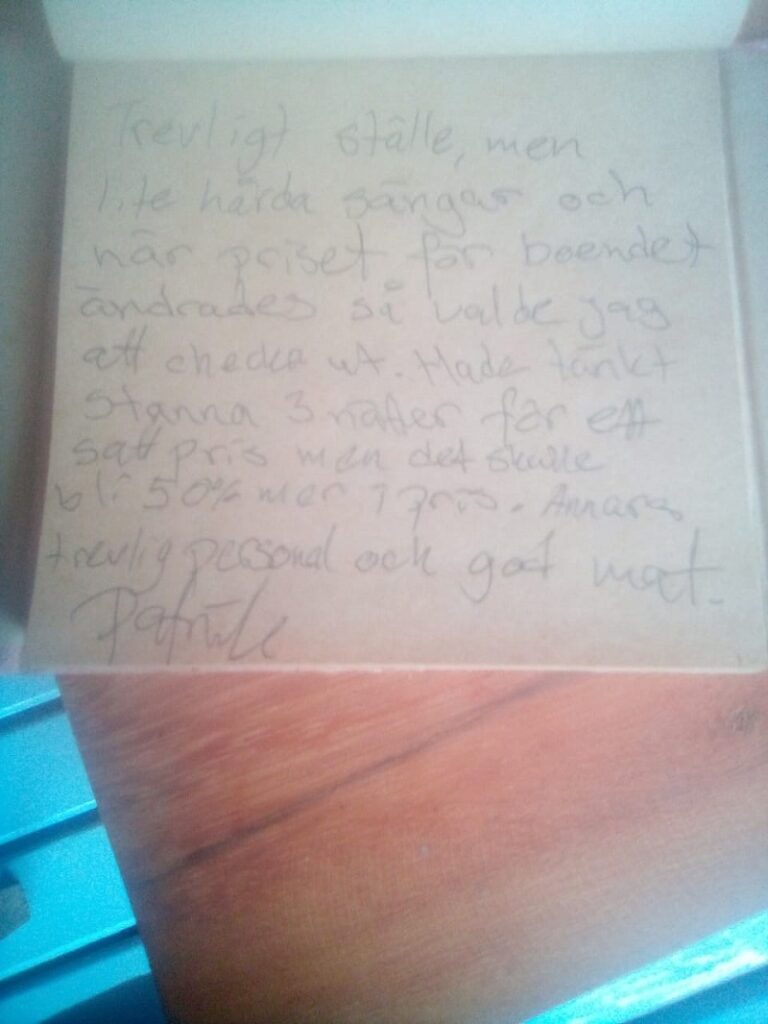 Trevligt ställe, men
lite hårda sängar och
när priset för boendet
ändrades så valde jag
att checka ut. Hade tänkt
stanna 3 nätter för ett
satt pris men det skulle
bli 50% mer i pris. Annars
trevlig personal och god mat.
Patrik